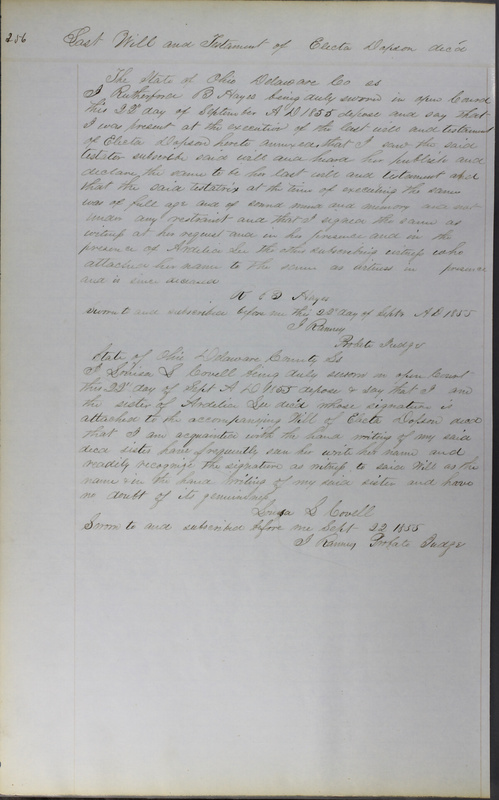 256
Last Will and Testament of Electa Dopson dec'd
The State of Ohio Delaware Co ss
I Rutherford B Hayes being duly sworn in open Court
this 22d day of September A D 1855 depose and say that
I was present at the execution of the last will and testament
of Electa Dopson hereto annexed, that I saw the said
testator subscribe said will and heard her publish and
declare the same to be her last will and testament and
that the said testatrix at the time of executing the same
was of full age and of sound mind and memory and not
under any restraint and that I signed the same as
witness at her request and in her presence and in the
presence of Ardelia Lee the other subscribing witness who
attached her name to the same as witness in presence
and is since deceased
R B Hayes
Sworn to and subscribed before me this 22d day of Sept A D 1855
J Ranney
Probate Judge
State of Ohio Delaware County Ss
I Louisa S Covell being duly sworn in open Court
this 22d day of Sept A D 1855 depose & say that I am
the sister of Ardelia Lee dec'd whose signature is
attached to the accompanying Will of Electa Dopson decd
that I am acquainted with the hand writing of my said
decd sister have frequently saw her write her name and
readily recognize the signature as witness to said Will as the
name & in the hand writing of my said sister and have
no doubt of its genuineness
Louisa S Covell
Sworn to and subscribed before me Sept 22 1855
J Ranney Probate Judge